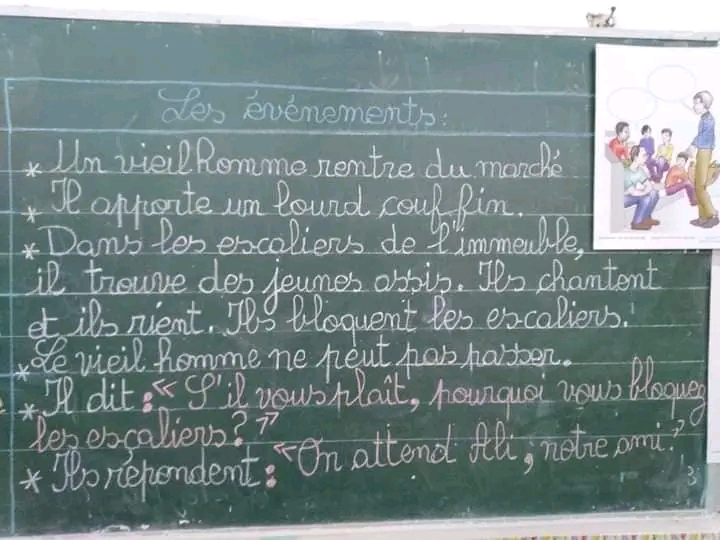 Les événements:
* Un vieil homme rentre du marché
* Il apporte un lourd couffin.
* Dans les escaliers de l'immeuble,
il trouve des jeunes assis. Ils chantent
et ils rient. Ils bloquent les escaliers.
* Le vieil homme ne peut pas passer.
* Il dit : « S'il vous plaît, pourquoi vous bloquez
les escaliers? »
* Ils répondent : "On attend Ali, notre ami."